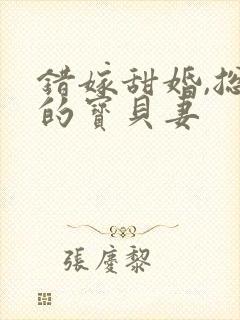 錯嫁甜婚,
的寶貝妻
張慶黎